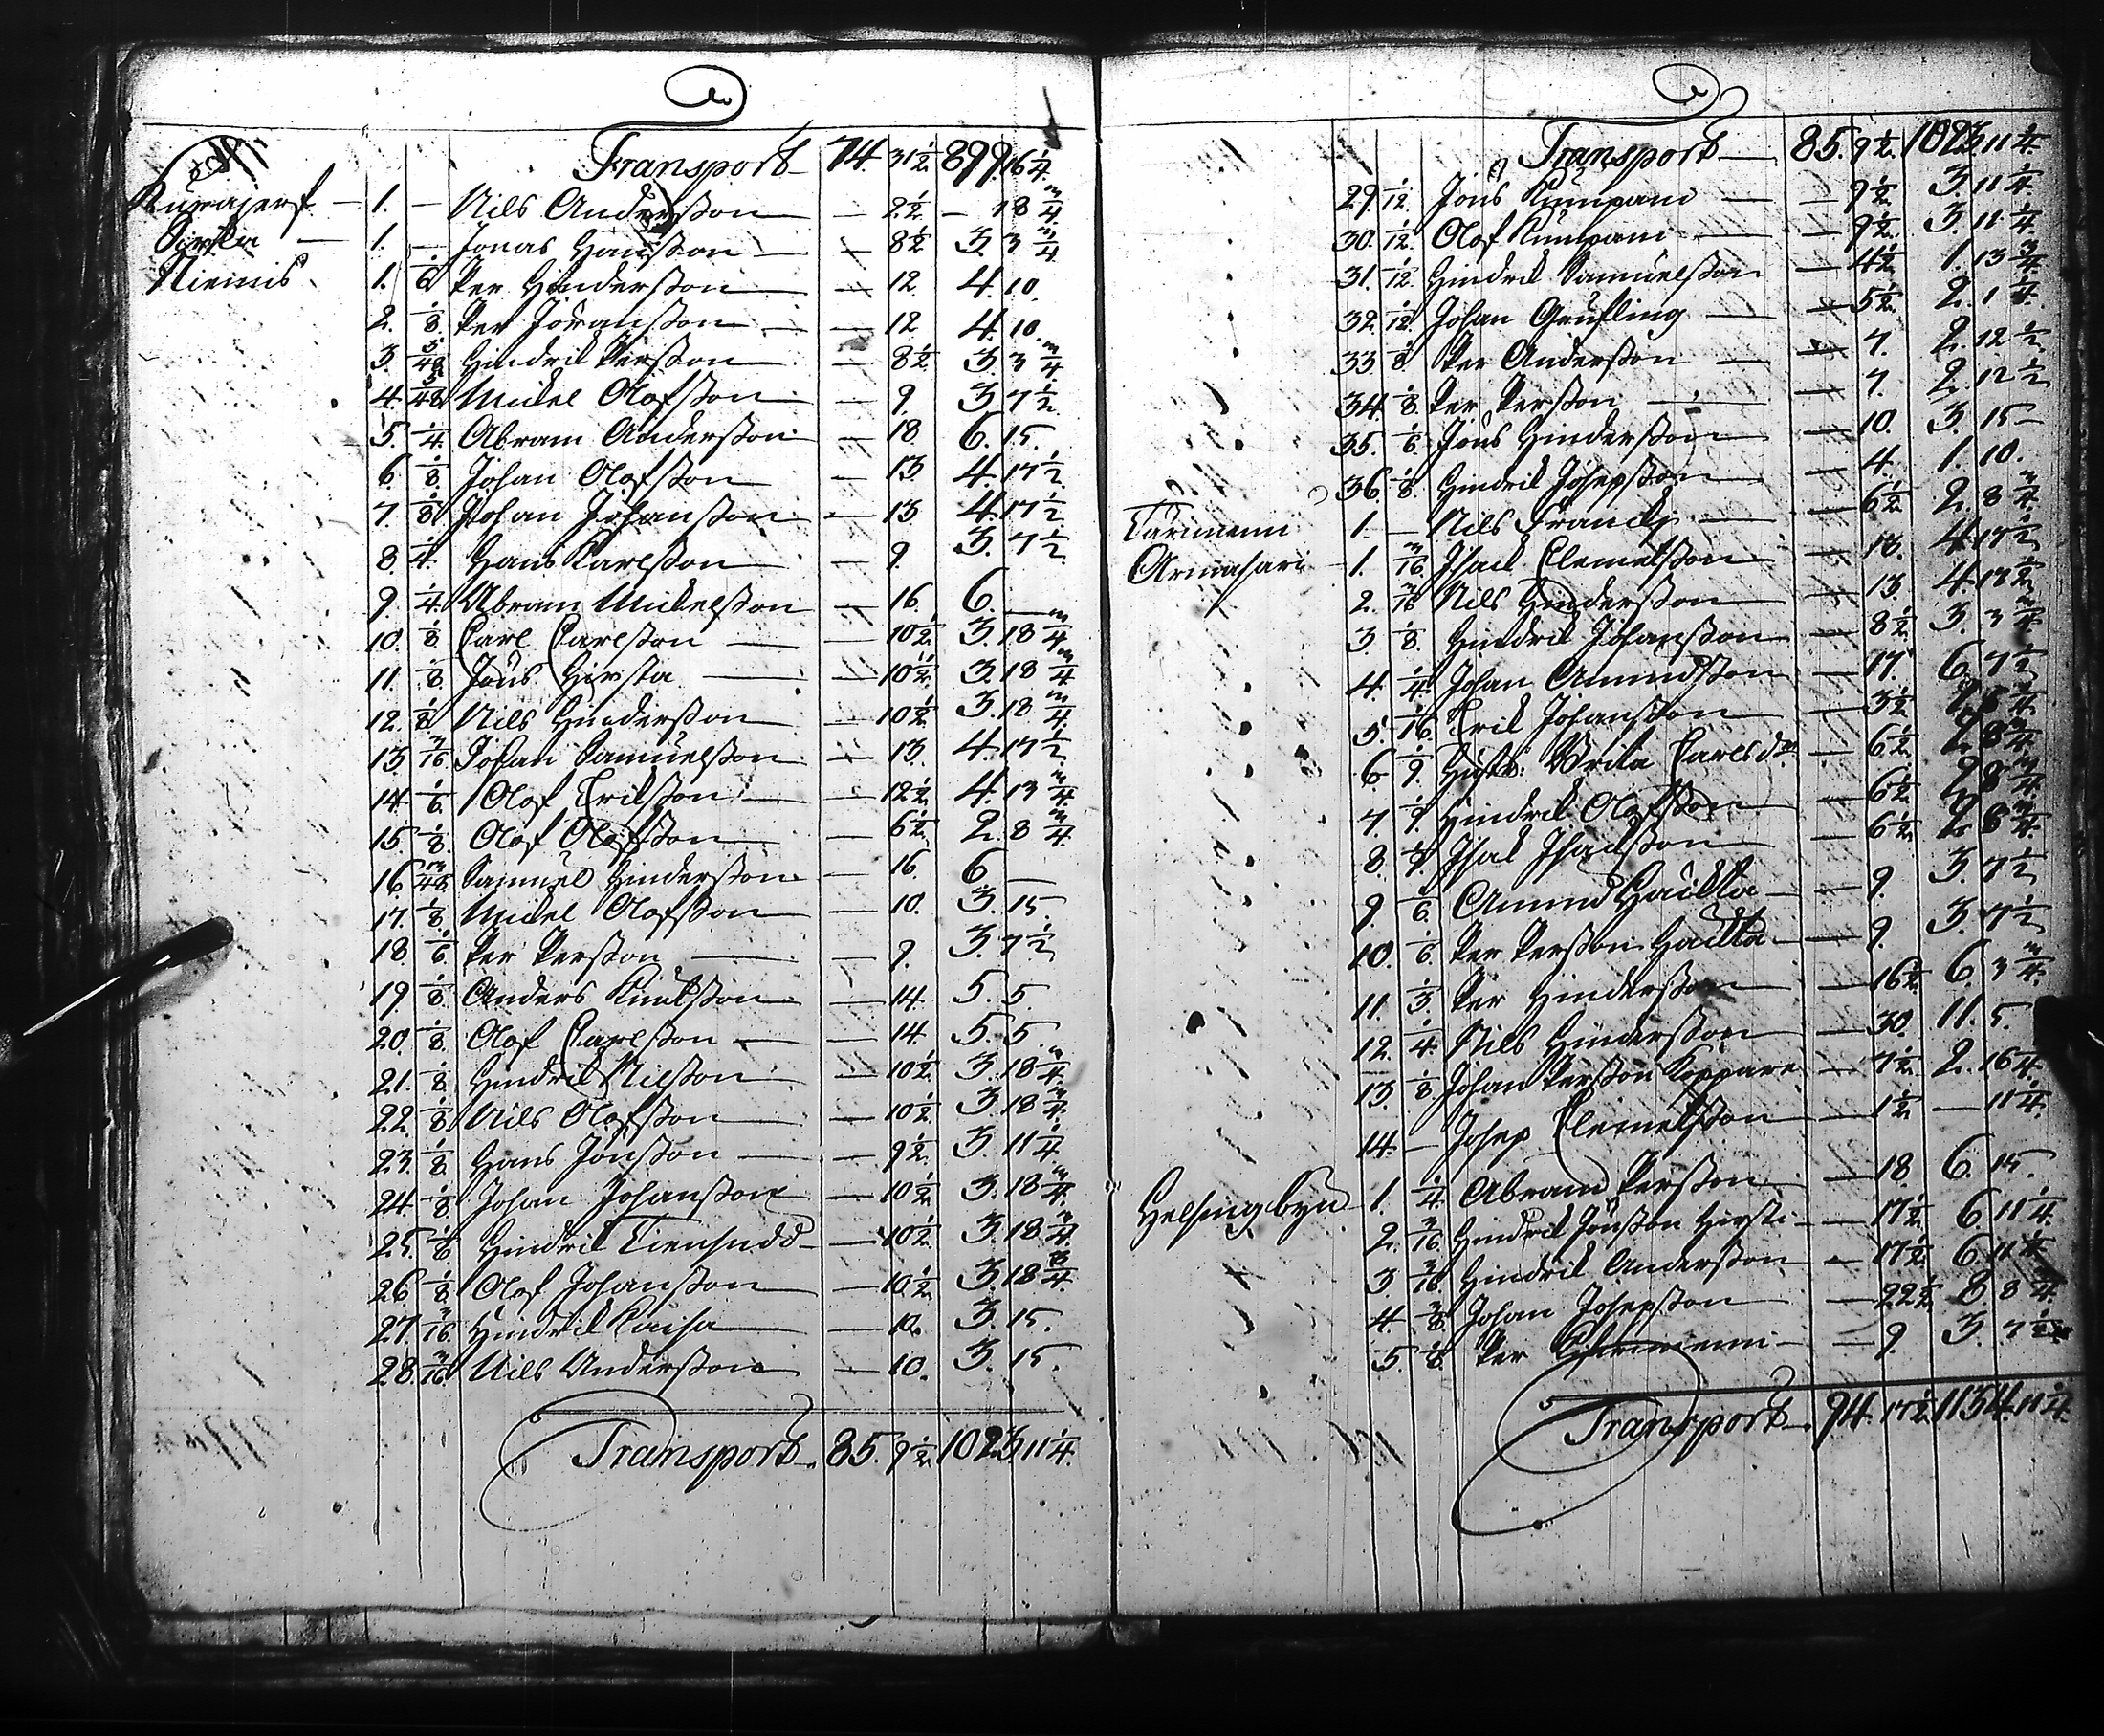 Transport 74. 31½ 899. 16¼
Kurajerf — 1. — Nils Andersson — 2½ — 18¾
Pirka — 1. — Jonas Hansson — 8½ 3. 3¾
Niemis. 1. 1/6 Per Hindersson — 12 4. 10.
2. 1/8. Per Joransson — 12 4. 10.
3. 5/48 Hindrik Persson — 8½ 3. 3¾
4. 5/48 Mickel Olofsson — 9. 3. 7½
5. 1/4. Abram Andersson — 18. 6. 15.
6. 1/8. Johan Olofsson — 13. 4. 17½
7. 1/8 Johan Johansson — 13. 4. 17½
8. 1/4. Hans Karlsson — 9. 3. 7½
9. 1/4. Abram Mickelsson — 16. 6. —
10. 1/8 Carl Carlsson — 10½ 3. 18¾
11. 1/8. Jöns Hirsta — 10½ 3. 18¾
12. 1/8 Nils Hindersson — 10½ 3. 18¾
13. 3/16 Johan Samuelsson — 13. 4. 17½
14. 1/6. Olof Ericksson — 12½ 4. 13¾
15. 1/8. Olof Olofsson — 6½ 2. 8¾
16. 7/48 Samuel Hindersson — 16. 6 —
17. 1/8. Mickel Olofsson — 10. 3. 15.
18. 1/6. Per Persson — 9. 3. 7½
19. 1/8. Anders Knutsson — 14. 5. 5
20. 1/8. Olof Carlsson — 14. 5. 5.
21. 1/8. Hindrik Nilsson — 10½ 3. 18¾
22. 1/8 Nils Olofsson — 10½ 3. 18¾
23. 1/8. Hans Jönsson — 9½ 3. 11¼
24. 1/8 Johan Johansson — 10½ 3. 18¾
25. 1/8 Hindrik — 10½ 3. 18¾
26. 1/8 Olof Johansson — 10½ 3. 18¾
27. 3/16. Hindrik Kaisa — 10. 3. 15.
28. 3/16. Nils Andersson — 10. 3. 15.
Transport. 85. 9½ 1023. 11¼
Transport — 85. 9½ 1023. 11¼
29. 1/12. Jöns Kumpani — 9½ 3. 11¼
30. 1/12. Olof Kumpani — 9½ 3. 11¼
31. 1/12. Hindrik Samuelsson — 4½ 1. 13¾
32. 1/12. Johan Grufling — 5½ 2. 1¼
33. 1/8 Per Andersson — 7. 2. 12½
34. 1/8. Per Persson — 7. 2. 12½
35. 1/6 Jöns Hindersson — 10. 3. 15 —
36. 1/8. Hindrik Josepsson — 4 1. 10.
Tarimenu 1. — Nils — 6½ 2. 8¾
Armasari 1. 3/16. Isack Clemetsson — 13. 4. 17½
2. 3/16 Nils Hindersson — 13. 4. 17½
3. 1/8. Hindrik Johansson — 8½ 3. 3¾
4. 1/4. Johan Amundsson — 17. 6. 7½
5. 1/16. Erick Johansson — 3½
6. 1/9. Hustr: Brita Carlsdr. — 6½ 2. 8¾
7. 1/9. Hindrik Olofsson — 6½ 2. 8¾
8. 1/9. Isak Isacksson — 6½ 2. 8¾
9. 1/6. Amund Hackta — 9. 3. 7½
10. 1/6. Per Persson Hackta — 9. 3. 7½
11. 1/3 Per Hindersson — 16½ 6. 3¾
12. 1/4. Nils Hindersson — 30. 11. 5.
13. 1/8. Johan Persson Koppare — 7½ 2. 16¼
14. — Josep Clemetsson — 1½ — 11¼
Helsingbyn 1. 1/4. Abram Persson — 18. 6. 15.
2. 3/16. Hindrik Jönsson Hirsti — 17½ 6. 11¼
3. 3/16 Hindrik Andersson — 17½ 6. 11¼
4. 3/8. Johan Josepsson — 22½ 8. 8¾
5. 1/8. Per — 9. 3. 7½
Transport. 94. 17½ 1134. 11¼